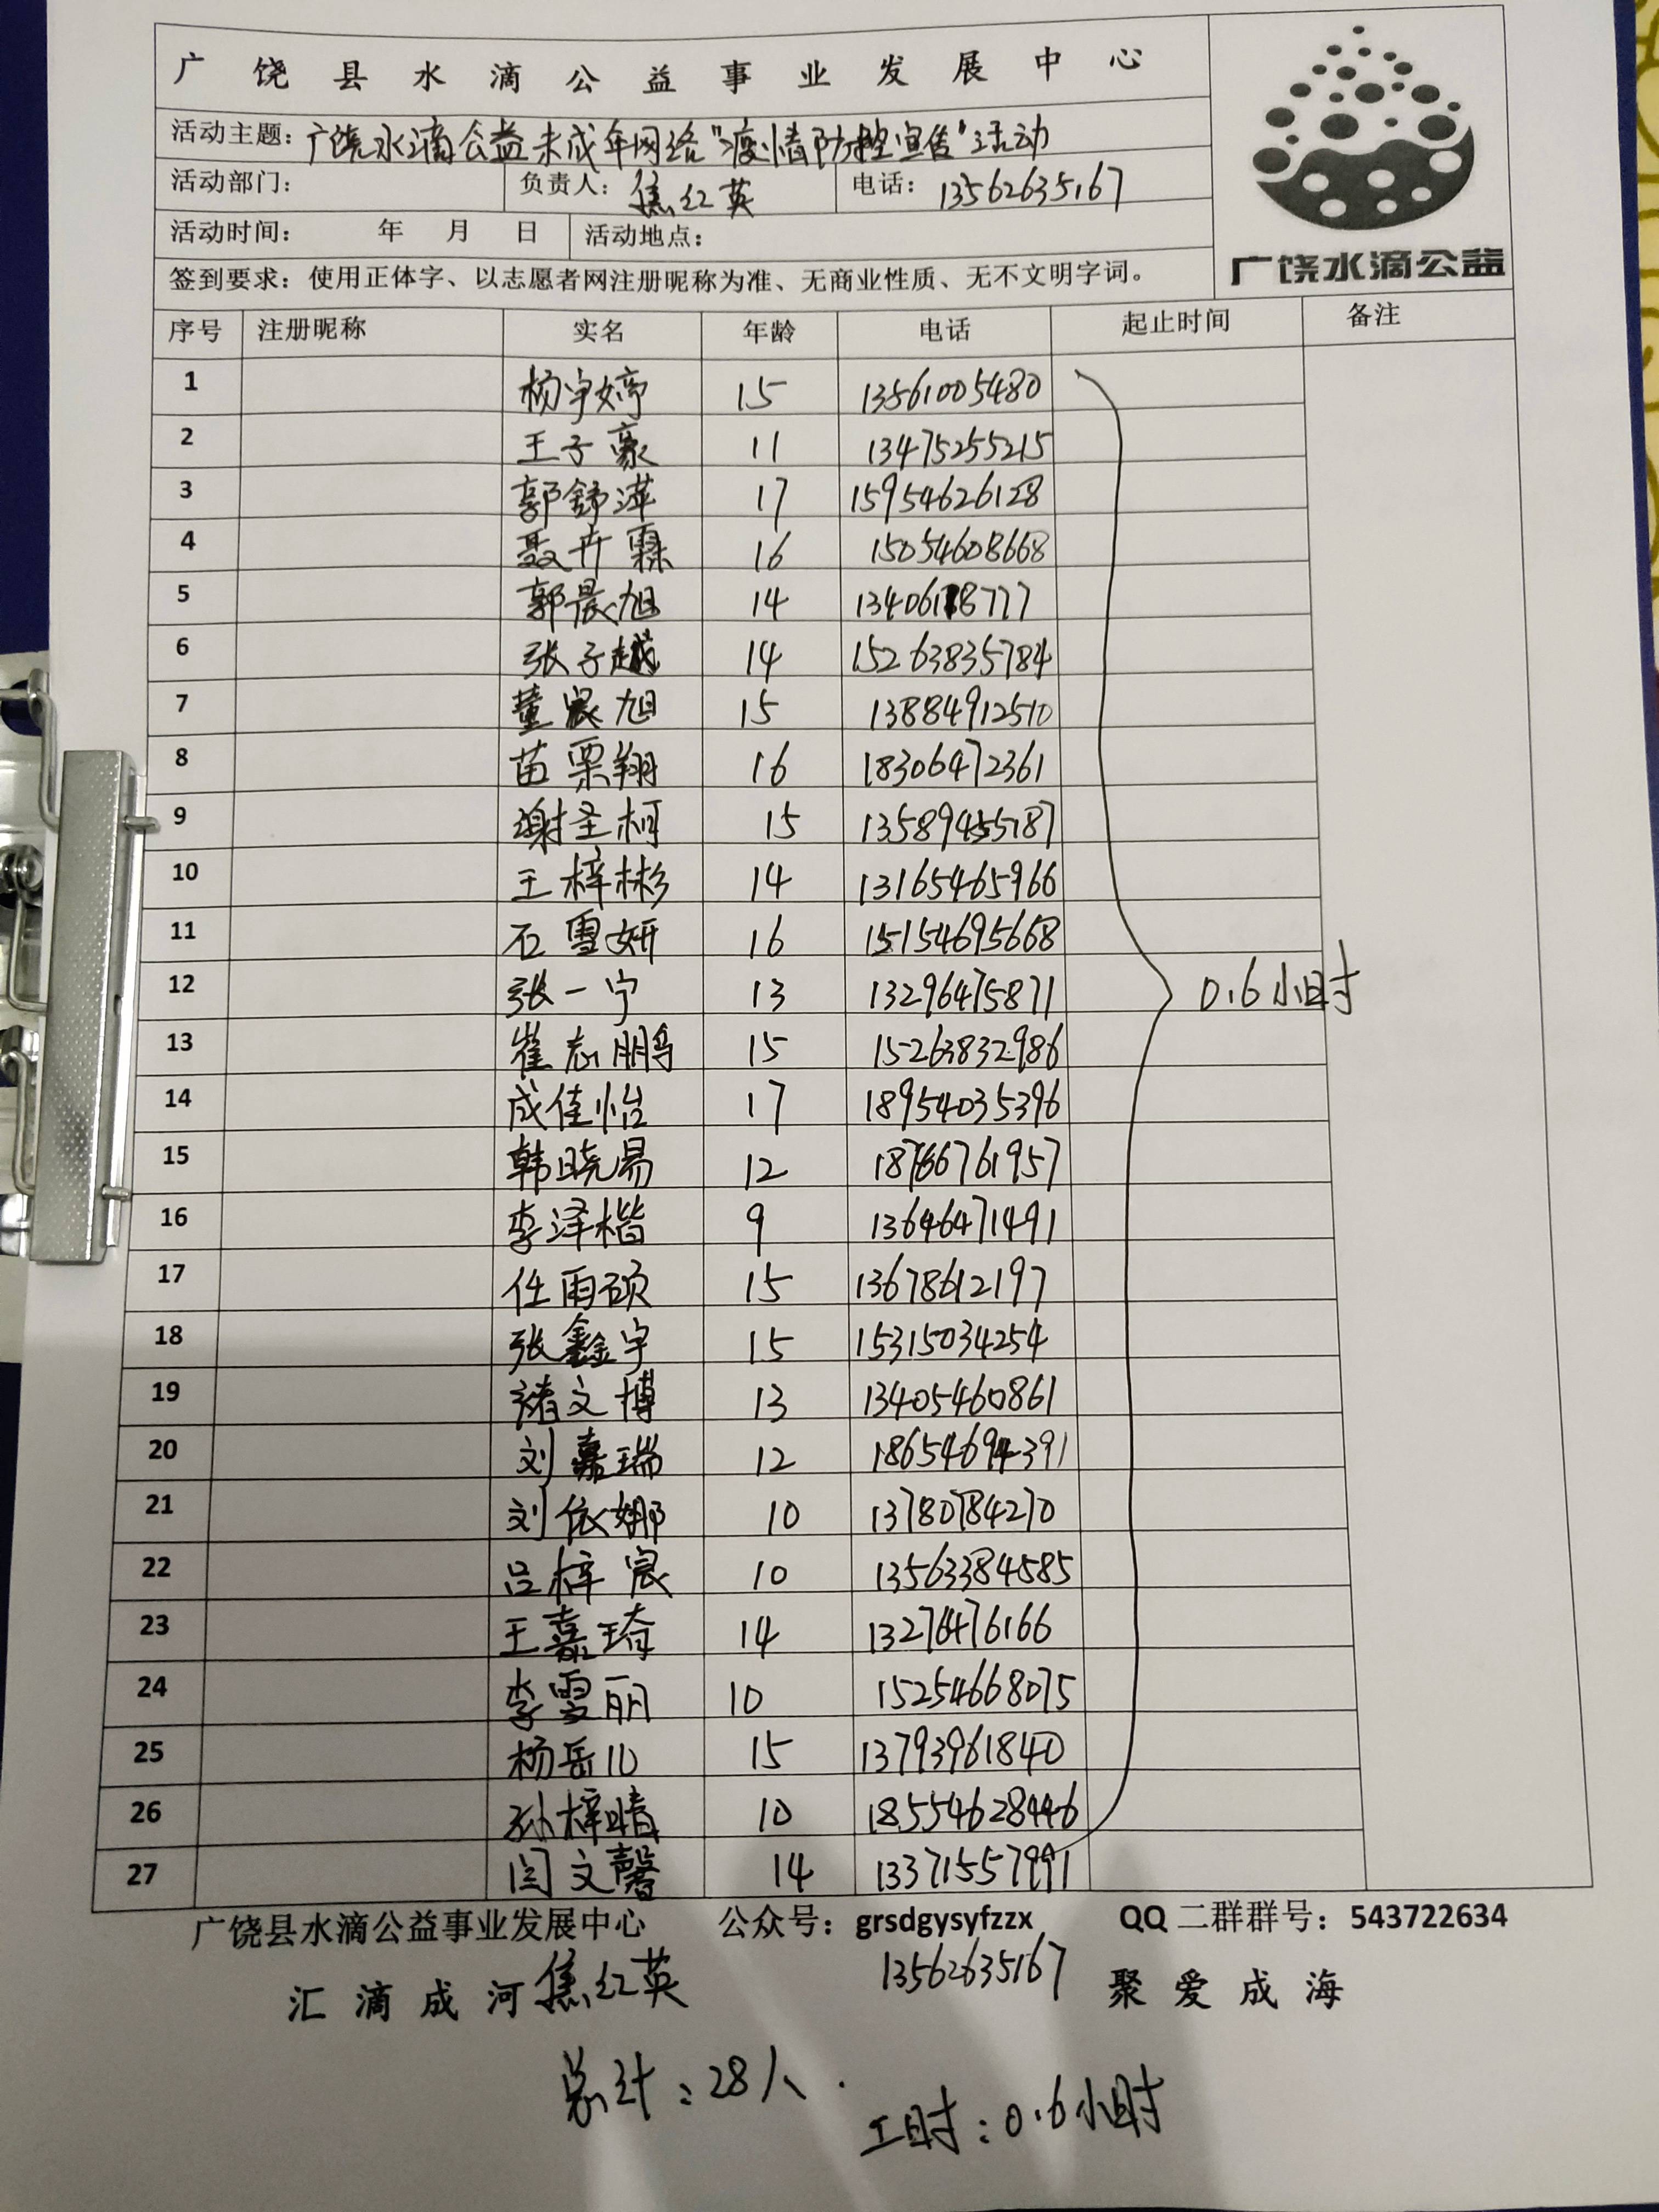 广饶县水滴公益事业发展中心
广饶水滴公益
活动主题：广饶水滴公益未成年网络"疫情防控宣传"活动
活动部门： 负责人：焦红英 电话：13562635167
活动时间： 年 月 日 活动地点：
签到要求：使用正体字、以志愿者网注册昵称为准、无商业性质、无不文明字词。
序号 注册昵称 实名 年龄 电话 起止时间 备注
1 杨宇婷 15 13561005480
2 王子豪 11 13475255215
3 郭舒萍 17 15954626128
4 聂卉霖 16 15054608668
5 郭晨旭 14
6 张子越 14 15263835784
7 董宸旭 15 13884912510
8 苗栗翔 16 18306472361
9 谢圣柯 15 13589455187
10 王梓彬 14 13165465966
11 石雪妍 16 15154695668
12 张一宁 13 13296475871 0.6小时
13 崔志鹏 15 15263832986
14 成佳怡 17 18954035396
15 韩晓易 12 18766761957
16 李泽楷 9 13646471491
17 任雨硕 15 13678612197
18 张鑫宇 15 15315034254
19 褚文博 13 13405460861
20 刘嘉瑞 12 18654694391
21 刘依娜 10 13780784270
22 吕梓宸 10 13563384585
23 王嘉琦 14 13276476166
24 李雪丽 10 15254668075
25 杨岳儿 15 13793961840
26 孙梓晴 10 18554628446
27 闫文馨 14 13371557991
广饶县水滴公益事业发展中心 公众号：grsdgysyfzzx QQ二群群号：543722634
汇滴成河 焦红英 13562635167 聚爱成海
总计：28人.
工时：0.6小时